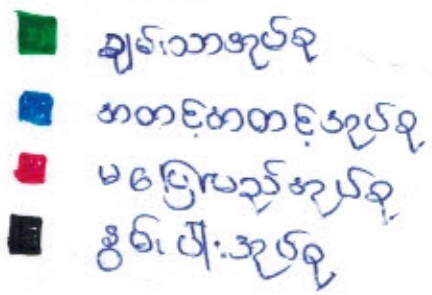 ချမ်းသာအုပ်စု
အတင့်အတင့်အုပ်စု
မပြေလည်အုပ်စု
နွမ်းပါးအုပ်စု